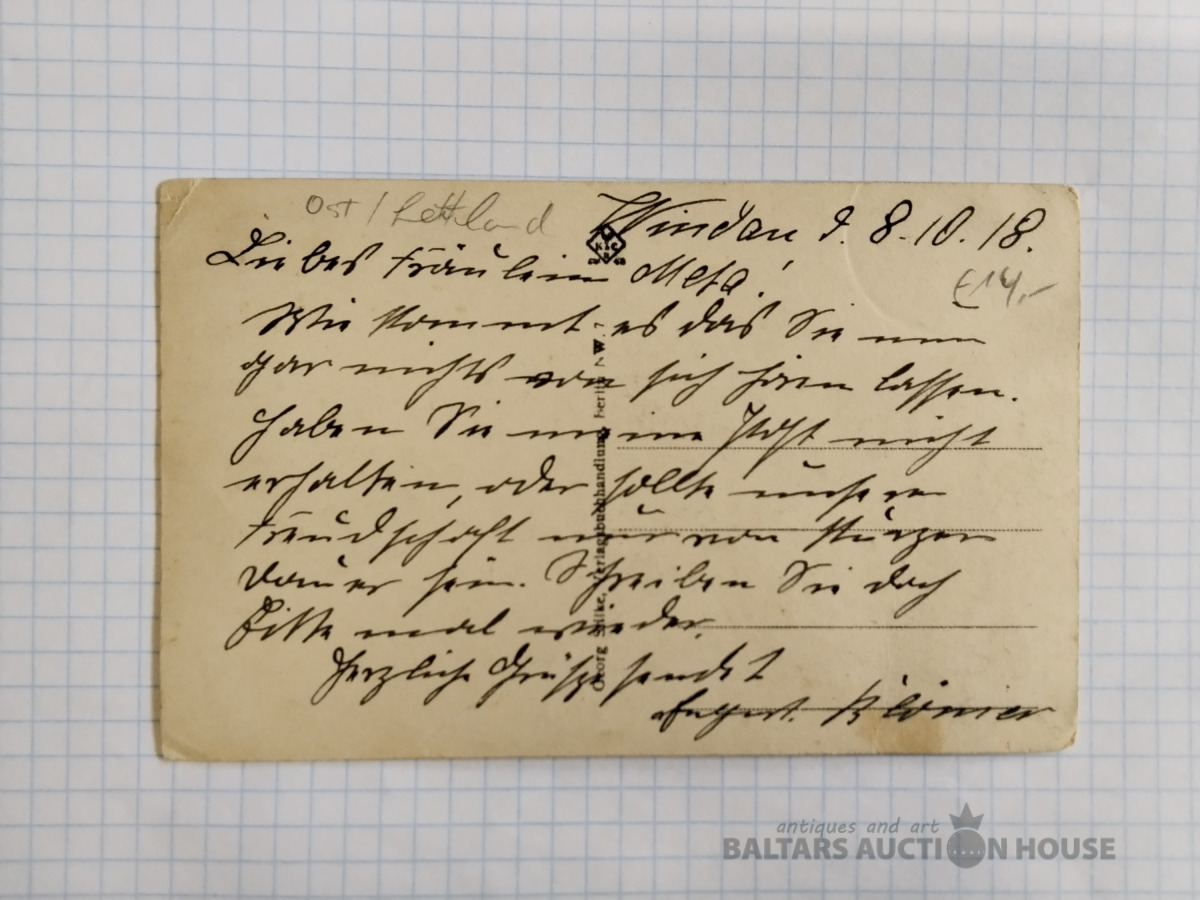 Ost / Lettland
Windau d. 8.10.18.
Liebes Fräulein Meta!
£14,-
Wie kommt es das Sie nun
gar nichts von sich hören lassen.
Haben Sie meine Post nicht
erhalten, oder sollte unsere
Freudschaft nur von kurzer
Dauer sein. Schreiben Sie doch
Bitte mal wieder.
Herzliche Grüße sendet
August.
Georg Stilke, Verlagsbuchhandlung, Berlin NW. 7
antiques and art
BALTARS AUCTION HOUSE